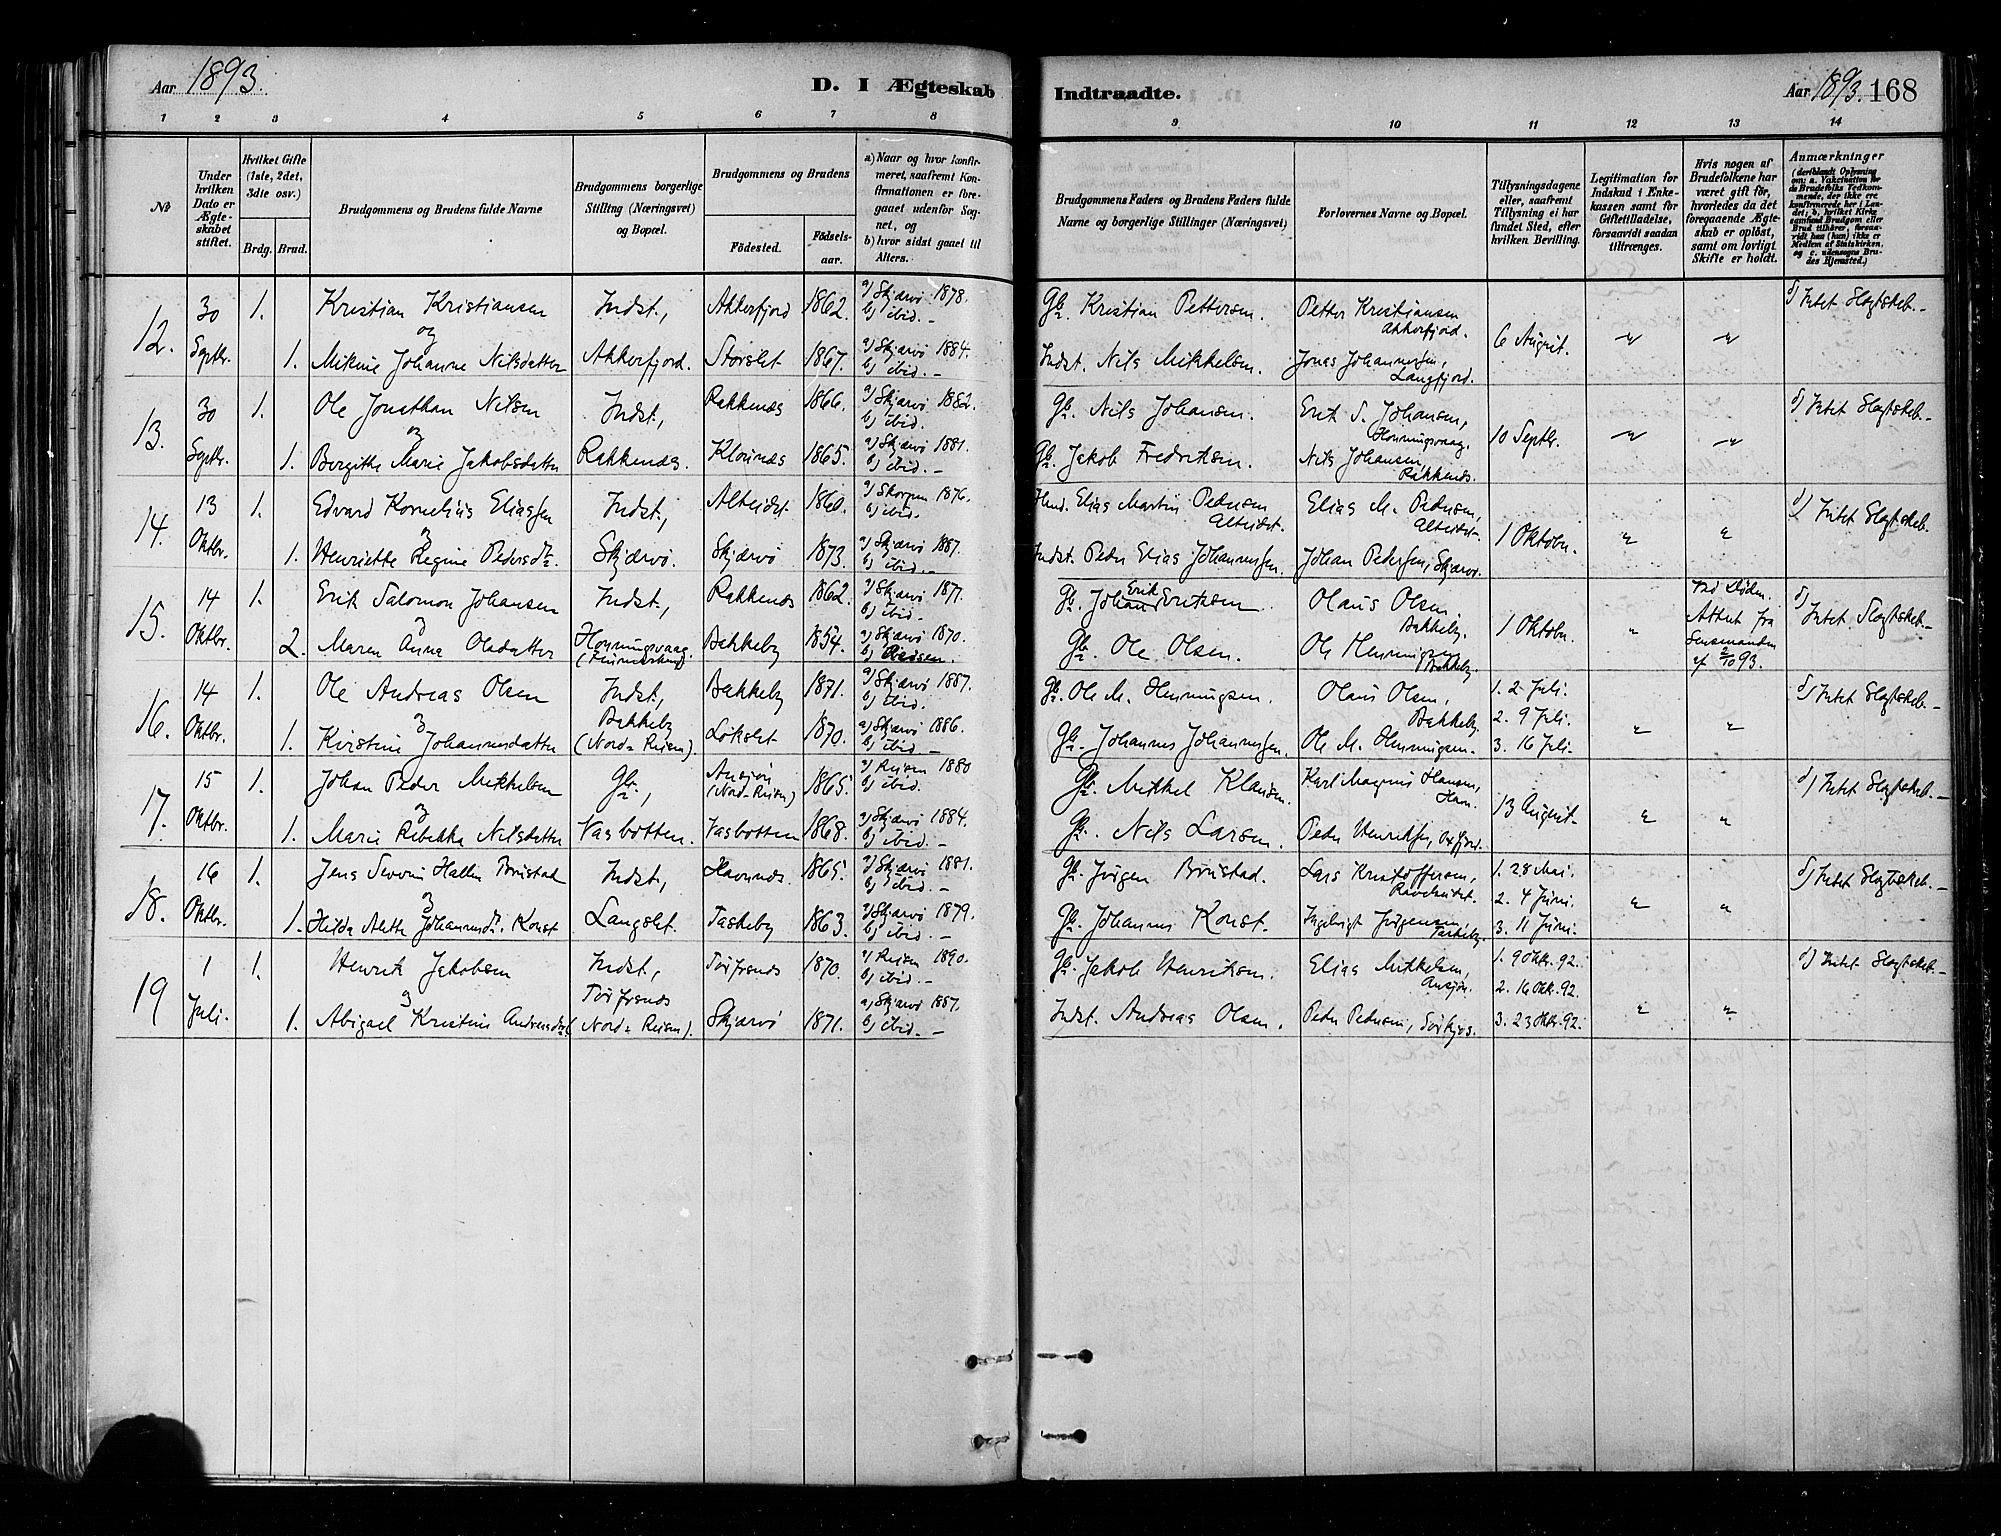 Aar 1893.
D. I Ægteskab Indtraadte.
Aar 1893. 168
1 2 3 4 5 6 7 8 9 10 11 12 13 14
№
Under hvilken Dato er Ægteskabet stiftet.
Hvilket Gifte (1ste, 2det, 3die osv.)
Brdg. Brud.
Brudgommens og Brudens fulde Navne
Brudgommens borgerlige Stilling (Næringsvei) og Bopæl.
Brudgommens og Brudens
Fødested. Fødselsaar.
a) Naar og hvor konfirmeret, saafremt Konfirmationen er foregaaet udenfor Sognet, og
b) hvor sidst gaaet til Alters.
Brudgommens Faders og Brudens Faders fulde Navne og borgerlige Stillinger (Næringsvei)
Forlovernes Navne og Bopæl.
Tillysningsdagene eller, saafremt Tillysning ei har fundet Sted, efter hvilken Bevilling.
Legitimation for Indskud i Enkekassen samt for Giftetilladelse, forsaavidt saadan tiltrænges.
Hvis nogen af Brudefolkene har været gift før, hvorledes da det foregaaende Ægteskab er opløst, samt om lovligt Skifte er holdt.
Anmærkninger (deriblandt Oplysning om: a. Vaccination for de Brudefolks Vedkommende, der ikke ere konfirmerede her i Landet; b. hvilket Kirkesamfund Brudgom eller Brud tilhører, forsaavidt han (hun) ikke er Medlem af Statskirken, og c. udensogns Brudes Hjemsted.)
12. 30 Septbr. 1. Kristian Kristiansen Indst., Akkerfjord 1862. a) Skjærvö 1878. b) ibid. Gbr. Kristian Pettersen. Petter Kristiansen Akkerfjord. 6 August. d) Intet Slægtskab.
og
1. Mikine Johanne Nilsdatter Akkerfjord. Storslet 1867. a) Skjærvö 1884. b) ibid. Indst. Nils Mikkelsen. Jonas Johannessen, Langfjord.
13. 30 Septbr. 1. Ole Jonathan Nilsen Indst., Rakkenæs 1866. a) Skjærvö 1882. b) ibid. Gbr. Nils Johansen. Erik S. Johansen, Honningsvaag. 10 Septbr. d) Intet Slægtskab.
og
1. Borgitte Marie Jakobsdatter Rakkenæs. Klovnæs 1865. a) Skjærvö 1881. b) ibid. Gbr. Jakob Fredriksen. Nils Johansen, Rakkenæs.
14. 13 Oktbr. 1. Edvard Kornelius Eliassen Indst., Alteidet 1860. a) Skorpen 1876. b) ibid. Elias Martin Pedersen Alteidet. Elias M. Pedersen, Alteidet. 1 Oktober. d) Intet Slægtskab.
1. Henriette Regine Pedersdtr. Skjærvö. Skjærvö 1873. a) Skjærvö 1887. b) ibid. Indst. Peder Elias Johannessen. Johan Pedersen, Skjærvö.
15. 14 Oktbr. 1. Erik Salomon Johansen Indst., Rakkenæs 1862. a) Skjærvö 1877. b) ibid. Gbr. Johan Erik Eriksen. Olaus Olsen, Bakkeby. 1 Oktober. Ved Døden. Attest fra Lensmanden af 2/10 93. d) Intet Slægtskab.
2. Maren Anna Olsdatter Honningsvaag. (Finmarken) Bakkeby 1854. a) Skjærvö 1870. b) Reisen. Gbr. Ole Olsen. Ole Henningsen Bakkeby.
16. 14 Oktbr. 1. Ole Andreas Olsen Indst, Bakkeby 1871. a) Skjærvö 1887. b) ibid. Gbr. Ole M. Henningsen. Olaus Olsen, Bakkeby. 1. 2 Juli. 2. 9 Juli. 3. 16 Juli. d) Intet Slægtskab.
1. Kirstine Johannesdatter Bakkeby (Nord-Reisen) Lökslet 1870. a) Skjærvö 1886. b) ibid. Gbr. Johannes Johannessen. Ole M. Henningsen.
17. 15 Oktbr. 1. Johan Peder Mikkelsen Gbr., (Nord-Reisen) 1865. a) Reisen 1880 b) ibid. Gbr. Mikkel Klausen. Karl Magnus Hansen, Ham. 13 August. d) Intet Slægtskab.
1. Marie Rebekka Nilsdatter Vasbotten. Vasbotten 1868. a) Skjærvö 1884. b) ibid. Gbr. Nils Larsen. Peder Henriksen, Oxfjord.
18. 16 Oktbr. 1. Jens Severin Hallen Brustad Indst, Havnnæs. 1865. a) Skjærvö 1881. b) ibid. Gbr. Jörgen Brustad. Lars Kristoffersen, 1. 28 Mai. 2. 4 Juni. 3. 11 Juni. d) Intet Slægtskab.
1. Hilda Alette Johannesdtr. Konst Langslet. Taskeby 1863. a) Skjærvö 1879. b) ibid. Gbr. Johannes Konst. Ingebrigt Jörgensen Taskeby.
19 1 Juli. 1. Henrik Jakobsen Indst, 1870. a) Reisen 1890. b) ibid. Gbr. Jakob Henriksen. Elias Mikkelsen, 1. 9 Oktr. 92. 2. 16 Okt. 92. 3. 23 Oktbr. 92. d) Intet Slægtskab.
1. Abigael Kristine Andreasdtr. (Nord-Reisen). Skjærvö 1871. a) Skjærvö 1887. b) ibid. Indst. Andreas Olsen. Peder Pedersen, Sörkjos.